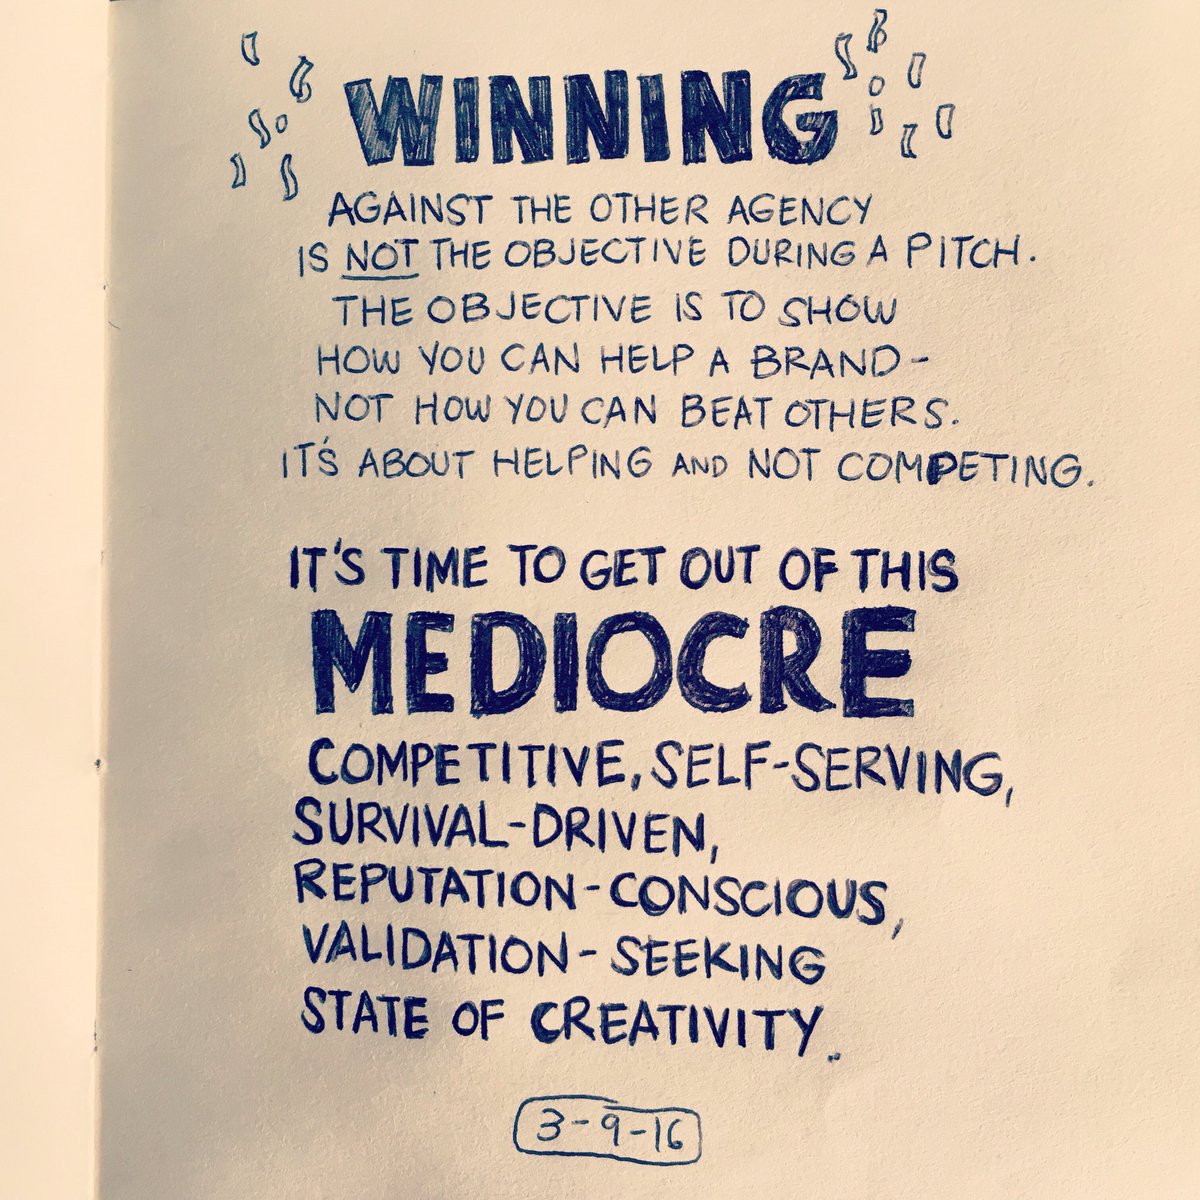 WINNING
AGAINST THE OTHER AGENCY
IS NOT THE OBJECTIVE DURING A PITCH.
THE OBJECTIVE IS TO SHOW
HOW YOU CAN HELP A BRAND-
NOT HOW YOU CAN BEAT OTHERS.
IT'S ABOUT HELPING AND NOT COMPETING.
IT'S TIME TO GET OUT OF THIS
MEDIOCRE
COMPETITIVE, SELF-SERVING,
SURVIVAL-DRIVEN,
REPUTATION-CONSCIOUS,
VALIDATION-SEEKING
STATE OF CREATIVITY.
3-9-16